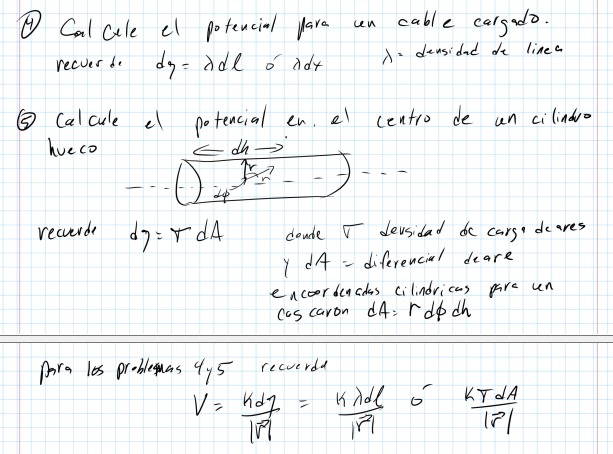 ④ Cal cule el potencial para un cable cargado.
recuerde dq = λdl ó λdx λ = densidad de linea
⑤ Calcule el potencial en. el centro de un cilindro
hueco
dh
r
r
dϕ
recuerde dq = σ dA donde σ densidad de carga de area
y dA = diferencial de are
en coordenadas cilindricas para un
cascaron dA = r dϕ dh
para los problemas 4 y 5 recuerda
V = Kdq/|r⃗| = Kλdl/|r⃗| ó KσdA/|r⃗|